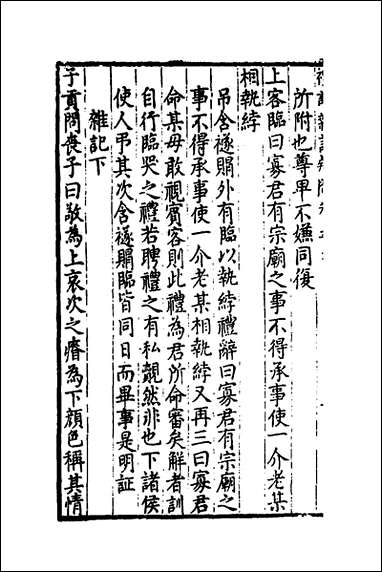 所附也尊畢不嫌同復
上客臨曰寡君有宗廟之事不得承事使一介老某
相執綍
吊含襚賵外有臨以執綍禮辭曰寡君有宗廟之
事不得承事使一介老某相執綍又再三曰寡君
命某毋敢視賓客則此禮為君所命審矣解者訓
自行臨哭之禮若聘禮之有私覿然非也下諸侯
使人弔其次含襚賵臨皆同日而畢事是明証
雜記下
子貢問喪子曰敬為上哀次之瘠為下顔色稱其情